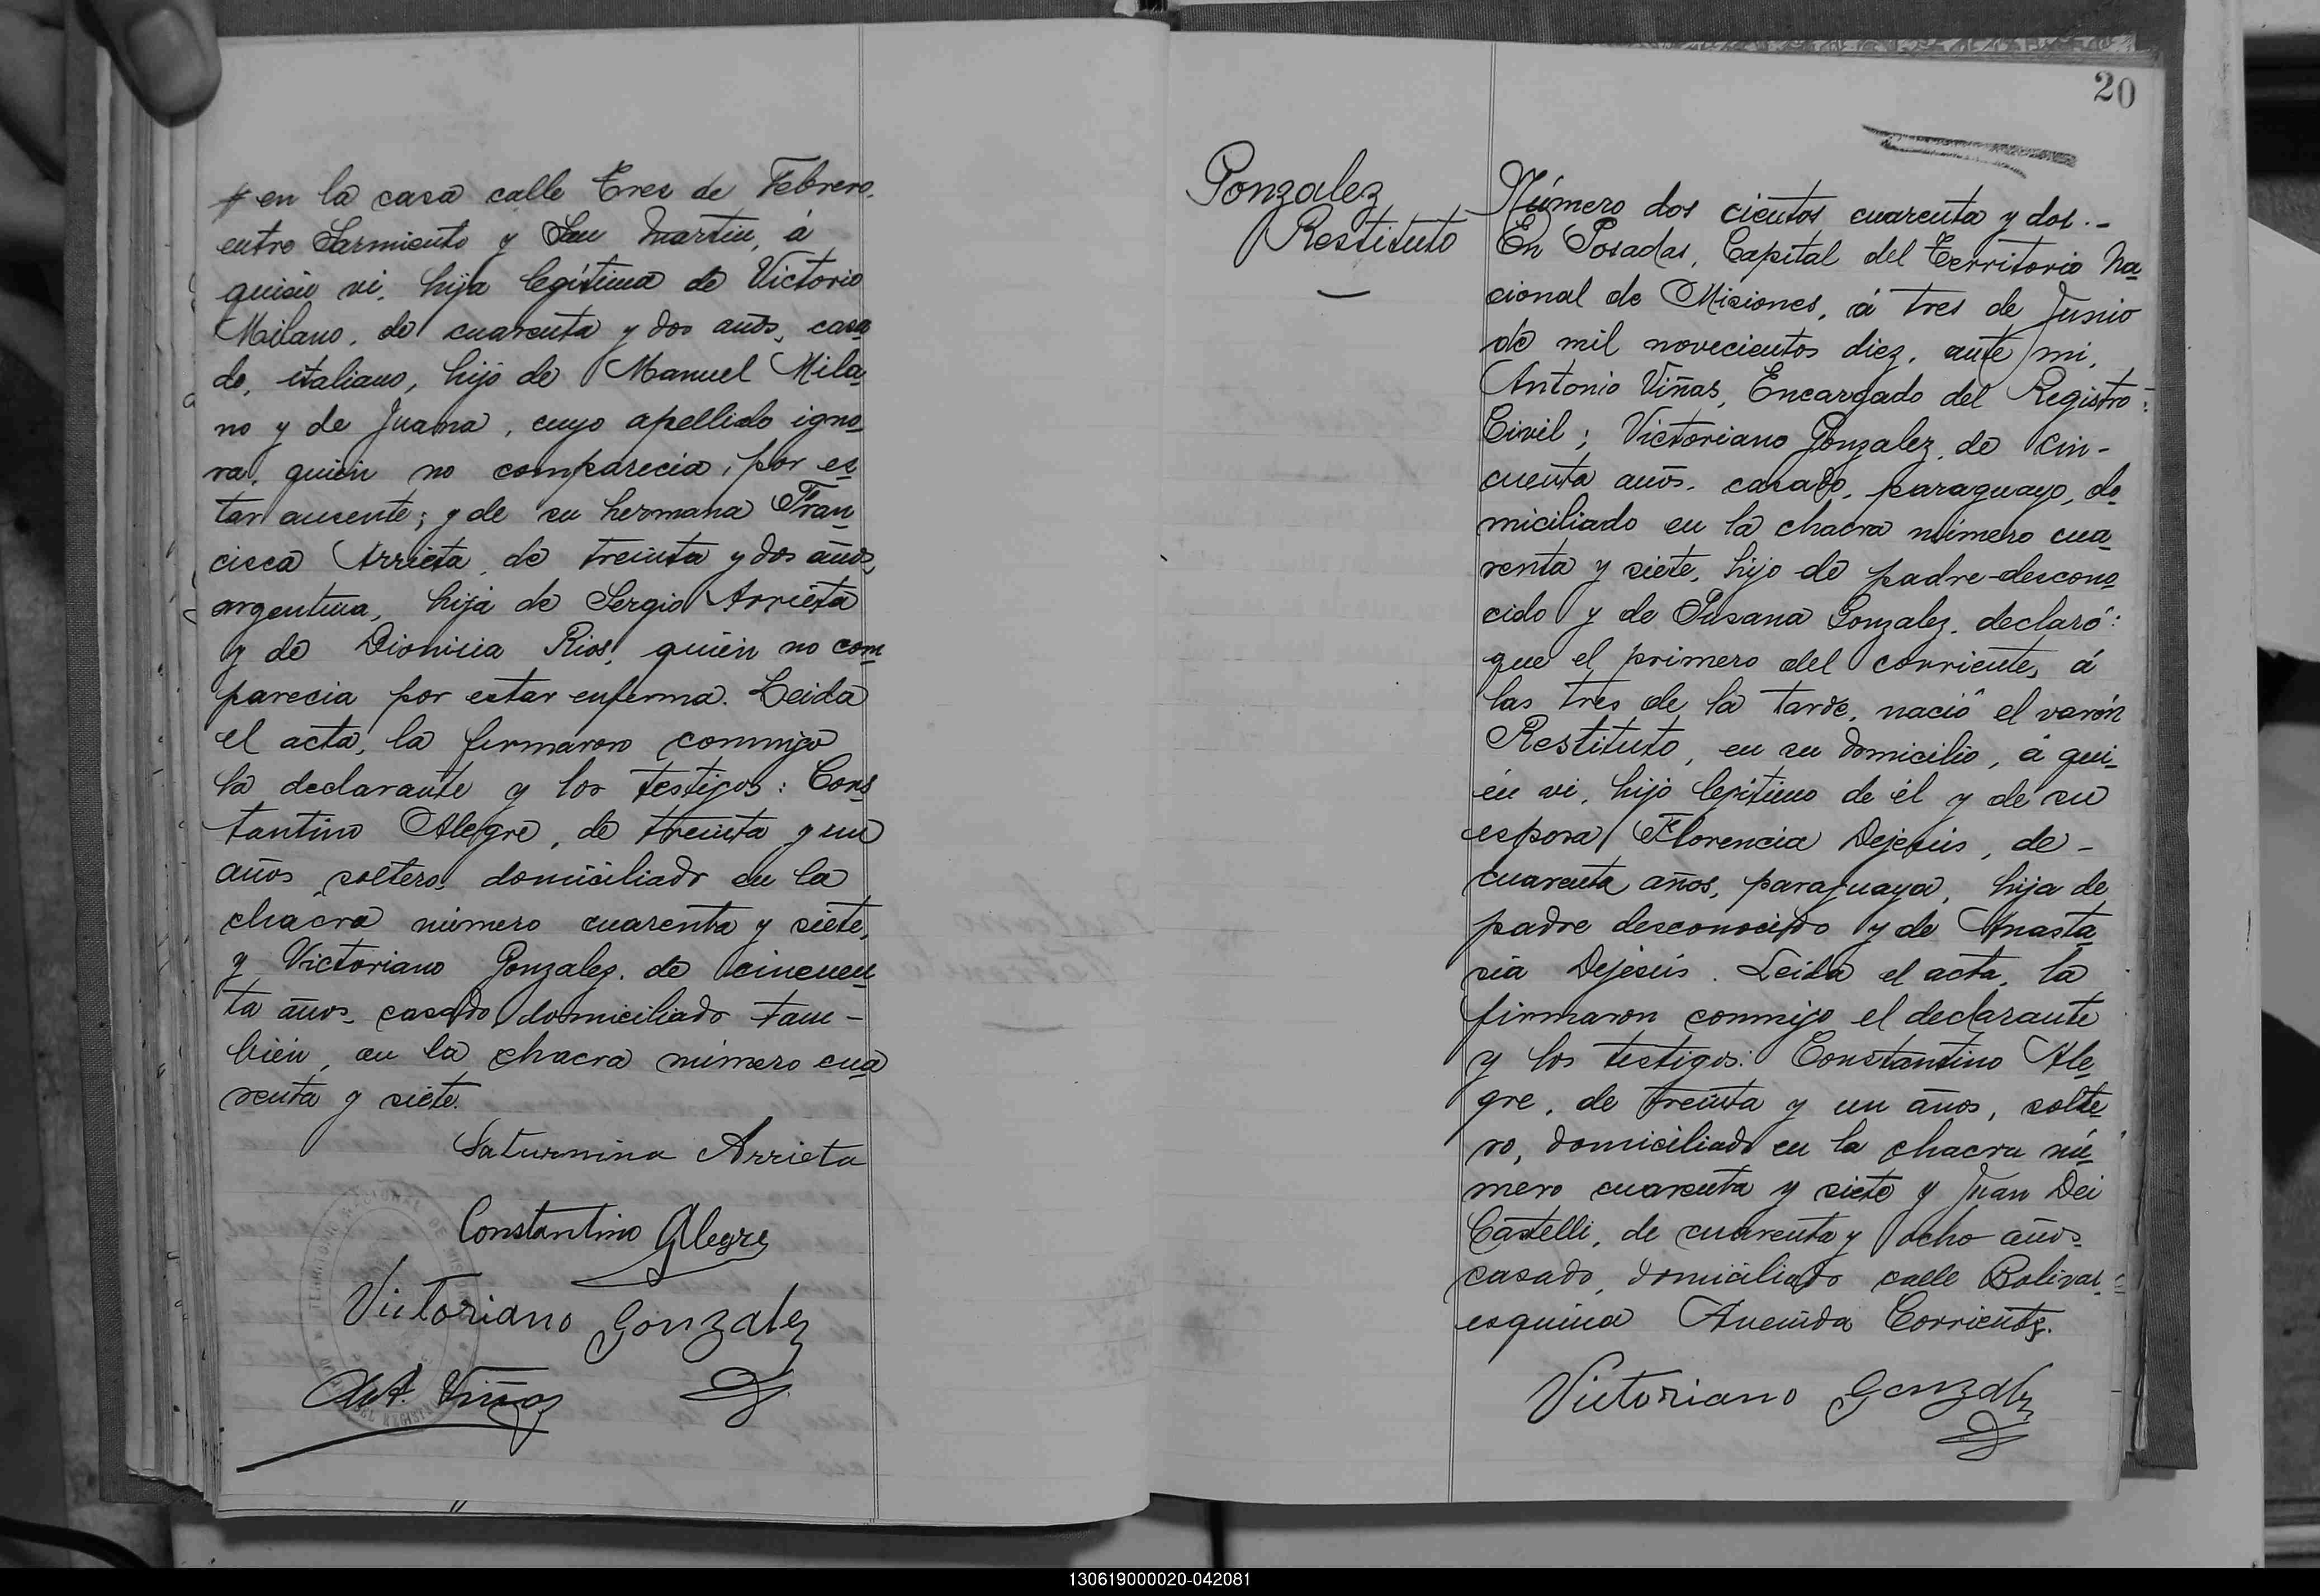 en la casa calle Tres de Febrero,
entre Sarmiento y San Martin, á
quién vi, hija legítima de Victorio
Milano, de cuarenta y dos años, casa
do, italiano, hijo de Manuel Mila
no y de Juana, cuyo apellido igno
ra, quién no comparecia, por es
tar ausente; y de su hermana Fran
cisca Arrieta, de treinta y dos años,
argentina, hija de Sergio Arrieta
y de Dionisia Rios, quién no com
parecia por estar enferma. Leida
el acta, la firmaron conmigo
la declarante y los testigos: Cons
tantino Alegre, de treinta y un
años, soltero, domiciliado en la
chacra número cuarenta y siete,
y Victoriano Gonzalez, de cincuen
ta años, casado, domiciliado tam-
bién, en la chacra número cua
renta y siete.
Saturnina Arrieta
Constantino Alegre
Victoriano Gonzalez
Ant. Viñas
20
Gonzalez
Restituto
Número dos cientos cuarenta y dos.-
En Posadas, Capital del Territorio Na
cional de Misiones, á tres de Junio
de mil novecientos diez, ante mi,
Antonio Viñas, Encargado del Registro
Civil; Victoriano Gonzalez, de cin-
cuenta años, casado, paraguayo, do
miciliado en la chacra número cua
renta y siete, hijo de padre descono
cido y de Susana Gonzalez, declaró:
que el primero del corriente, á
las tres de la tarde, nació el varón
Restituto, en su domicilio, á qui-
én vi, hijo legítimo de él y de su
esposa Florencia Dejesús, de -
cuarenta años, paraguaya, hija de
padre desconocido y de Anasta
sia Dejesús. Leida el acta, la
firmaron conmigo el declarante
y los testigos: Constantino Ale
gre, de treinta y un años, solte
ro, domiciliado en la chacra nú
mero cuarenta y siete y Juan Dei
Castelli, de cuarenta y ocho años
casado, domiciliado calle Bolivar
esquina Avenida Corrientes.
Victoriano Gonzalez
130619000020-042081